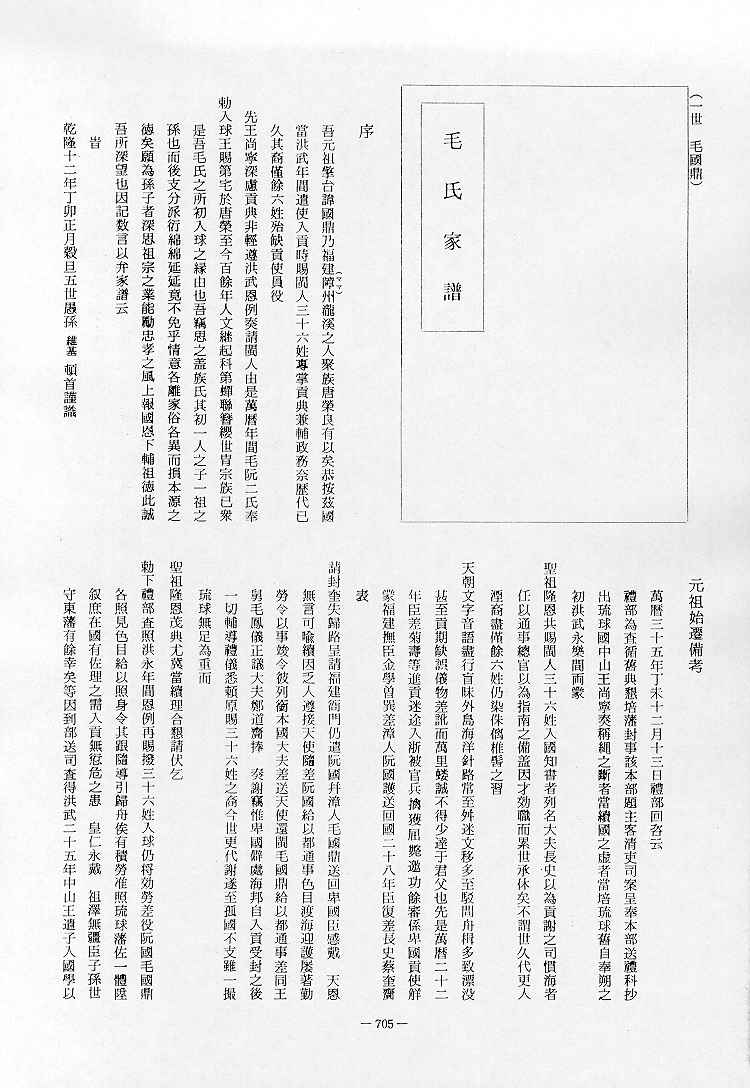 (一世　毛國鼎)
毛氏家譜
序
吾元祖擎台諱國鼎乃福建障州龍溪之人聚族唐榮良有以矣恭按茲國
(ママ)
當洪武年間遣使入貢時賜閩人三十六姓專掌貢典兼輔政務奈歷代已
久其裔僅餘六姓殆缺貢使員役
先王尚寧深慮貢典非輕遵洪武恩例奏請閩人由是萬曆年間毛阮二氏奉
勅入球王賜第宅於唐榮至今百餘年人文継起科第蟬聯簪纓世冑宗族已衆
是吾毛氏之所初入球之縁由也吾竊思之蓋族氏其初一人之子一祖之
孫也而後支分派衍綿綿延延竟不免乎情意各離家俗各異而損本源之
徳矣願為孫子者深思祖宗之業能勵忠孝之風上報國恩下輔祖徳此誠
吾所深望也因記数言以弁家譜云
旹
乾隆十二年丁卯正月穀旦五世愚孫 維基 頓首謹識
元祖始遷備考
萬曆三十五年丁未十二月十三日禮部回咨云
禮部為査循舊典懇培藩封事該本部題主客清吏司案呈奉本部送禮科抄
出琉球國中山王尚寧奏稱繩之斷者當續國之虚者當培琉球舊自奉朔之
初洪武永樂間両蒙
聖祖隆恩共賜閩人三十六姓入國知書者列名大夫長史以為貢謝之司慣海者
任以通事總官以為指南之備蓋因才効職而累世承休矣不謂世久代更人
湮裔盡僅餘六姓仍染侏𠌯椎髻之習
天朝文字音語盡行盲昧外島海洋針路常至舛迷文移多至駁問舟楫多致漂没
甚至貢期缺誤儀物差訛而萬里螻誠不得少達于君父也先是萬曆二十二
年臣差菊壽等進貢迷途入浙被官兵擒獲屈斃邀功餘審係卑國貢使觧
蒙福建撫臣金學曽巽差漳人阮國護送回國二十八年臣復差長史蔡奎齎
表
請封奎失歸路呈請福建衙門仍遣阮國幷漳人毛國鼎送回卑國臣感戴　天恩
無言可喩續因乏人遵接天使隨差阮國給以都通事色目渡海迎護屢著勤
勞今以事竣令彼列銜本國大夫差送天使還閩毛國鼎給以都通事差同王
舅毛鳳儀正議大夫鄭道齎捧　奏謝竊惟卑國僻處海邦自入貢受封之後
一切輔導禮儀悉頼原賜三十六姓之裔今世更代謝遂至孤國不支雖一撮
琉球無足為重而
聖祖隆恩茂典尤冀當續理合懇請伏乞
勅下禮部査照洪永年間恩例再賜撥三十六姓入球仍将効勞差役阮國毛國鼎
各照見色目給以照身令其跟隨導引歸舟俟有積勞准照琉球藩佐一體陞
叙庶在國有佐理之需入貢無愆危之患　皇仁永戴　祖澤無疆臣子孫世
守東藩有餘幸矣等因到部送司査得洪武二十五年中山王遣子入國學以
— 705 —